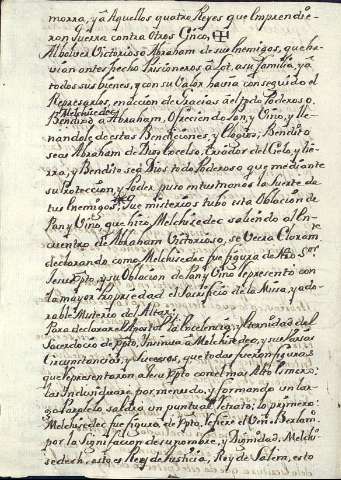 morra, y á Aquellos quatro Reyes que Emprendie-
ron Guerra contra otros Cinco,
Al bolver Victorioso Abraham de sus Enemigos, que ha-
vian antes hecho Prisioneros á Lot, a su familia, y á
todos sus bienes, y con su Valor havia conseguido el
Represarlos, en accion de Gracias al todo Poderoso
Melchisedec
Bendixo a Abraham, Ofreciendo Pan, y Vino, y lle-
nandole de estas Bendiciones, y Elogios; Bendito
seas Abraham de Dios Excelso, Criador del Cielo, y tie-
rra, y Bendito sea Dios todo Poderoso que mediante
su Proteccion, y Poder puso en tus manos la suerte de
tus Enemigos, que misterios tubo esta Oblacion de
Pan y Vino que hizo Melchisedec saliendo al En-
cuentro de Abraham Victorioso, se verá Claramte
declarando como Melchisedec fue figura de Nro Sor
Jesu Xpto, y su Oblacion de Pan y Vino represento con
la mayor Propriedad el Sacrificio de la Missa, y ado-
rable Misterio del Altar;
Para declarar el Apostol la Excelencia, y Eternidad del
Sacerdocio de Xpto, Insinua á Melchisedec, y sus
Circunstancias, y Sucesos, que todas fueron figuras
que representaron a Jesu Xpto con el mas Alto Esmero;
las Individuare por menudo, y formando un lar-
go Paralelo saldra un puntual retrato, lo primero
Melchisedec fue figura de Xpto,
por la Signification de su nombre, y Dignidad, Melchi-
sedech, esto es Rey de Justicia, Rey de Salem, esto